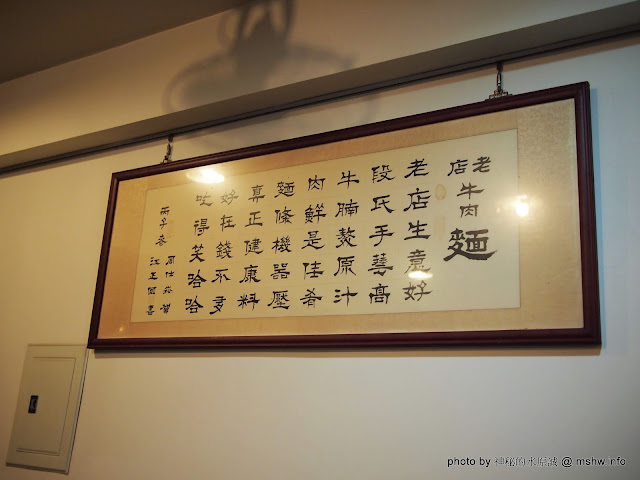 老店牛肉麵
老店生意好
段氏手藝高
牛腩熬原汁
肉鮮是佳肴
麵條機器壓
真正健康料
好在錢不多
吃得笑哈哈
丙子春
photo by 神秘的水底城 @ mshw.info